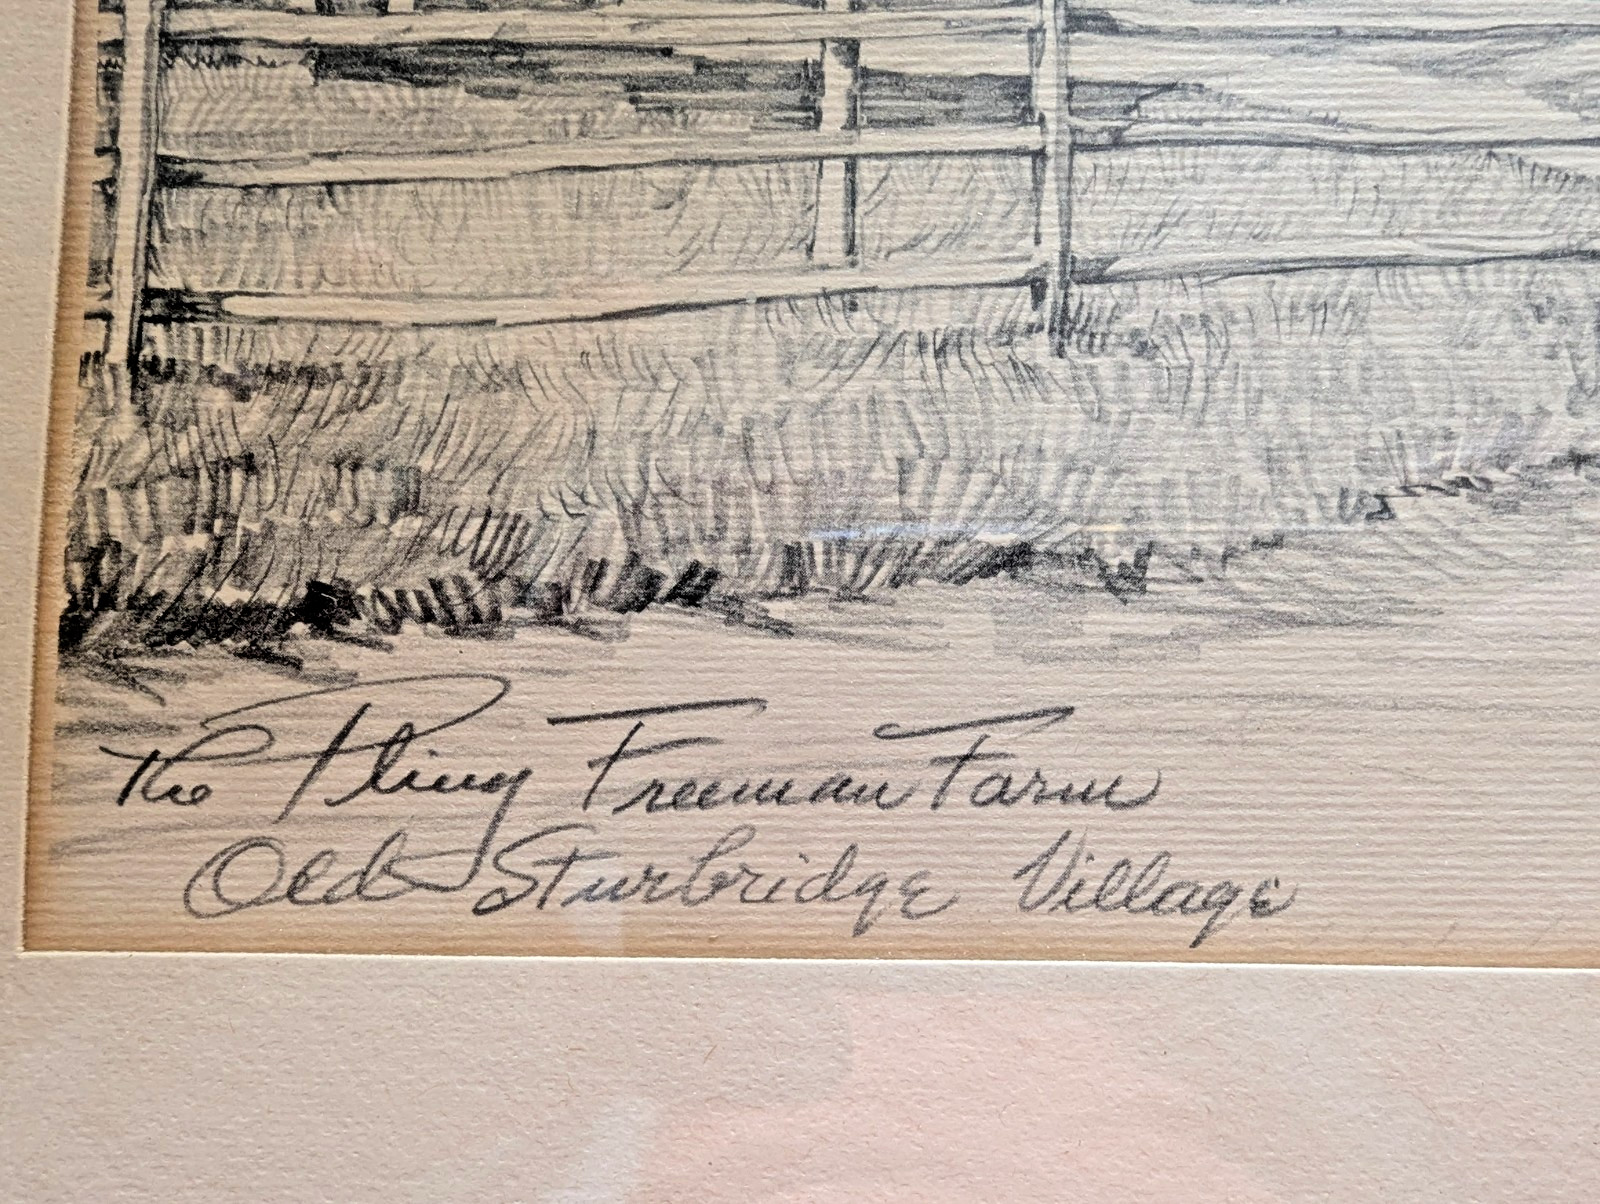 The Pliny Freeman Farm
Old Sturbridge Village